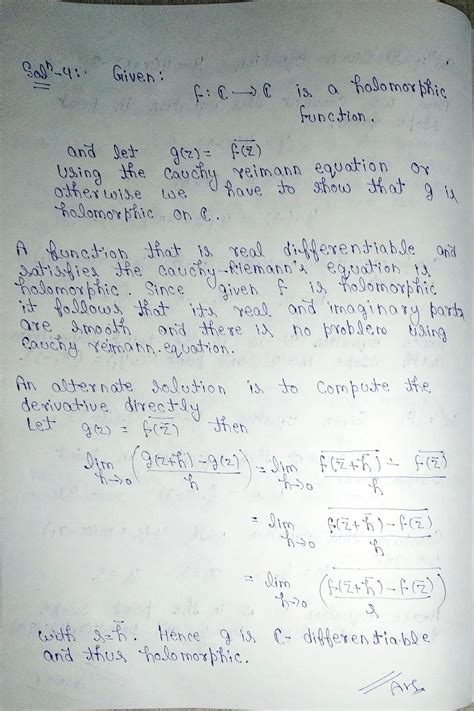 Solⁿ-4:. Given:
f: ℂ → ℂ is a holomorphic
function.
and let g(z) = \overline{f(\bar{z})}
Using the cauchy reimann equation or
otherwise we have to show that g is
holomorphic on ℂ.
A function that is real differentiable and
satisfies the cauchy-Riemann's equation is
holomorphic. Since given f is holomorphic
it follows that its real and imaginary parts
are smooth and there is no problem using
Cauchy reimann equation.
An alternate solution is to compute the
derivative directly
Let g(z) = \overline{f(\bar{z})} then
lim_{h→0} (\frac{g(z+h)-g(z)}{h}) = lim_{h→0} \frac{\overline{f(\bar{z}+\bar{h})} - \overline{f(\bar{z})}}{h}
= lim_{h→0} \frac{\overline{f(\bar{z}+\bar{h})-f(\bar{z})}}{h}
= lim_{h→0} \overline{(\frac{f(\bar{z}+\bar{h})-f(\bar{z})}{s})}
with s=\bar{h}. Hence g is ℂ- differentiable
and thus holomorphic.
Ans